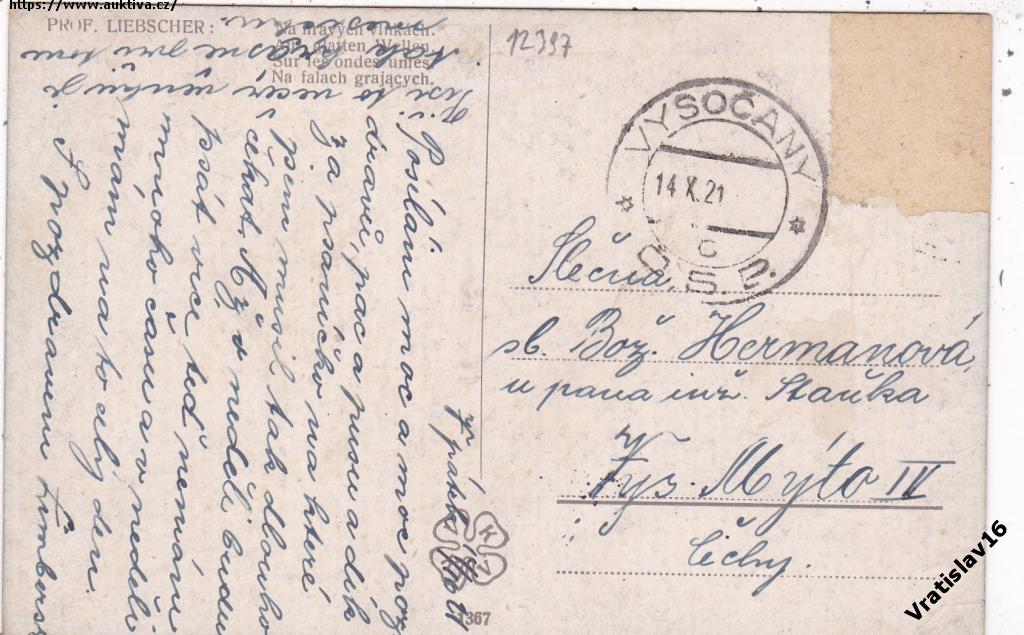 https://www.auktiva.cz/
PROF. LIEBSCHER:
Na hravých vlnkách.
Auf glatten Wellen.
Sur les ondes unies.
Na falach grających.
12397
VYSOČANY
14 X.21
C
Č.S.P.
Slečna,
sl. Bož. Hermanová,
u pana inž. Staňka
Vys. Mýto IV
Čechy.
Posílám moc a moc poz
dravů, pac a pusu a dík
za psaníčko na které
jsem musil tak dlouho
čekat. Až v neděli budu
psát více teď nemám
mnoho času a v neděli
mám na to celý den.
S pozdravem
V
1367
Vratislav16